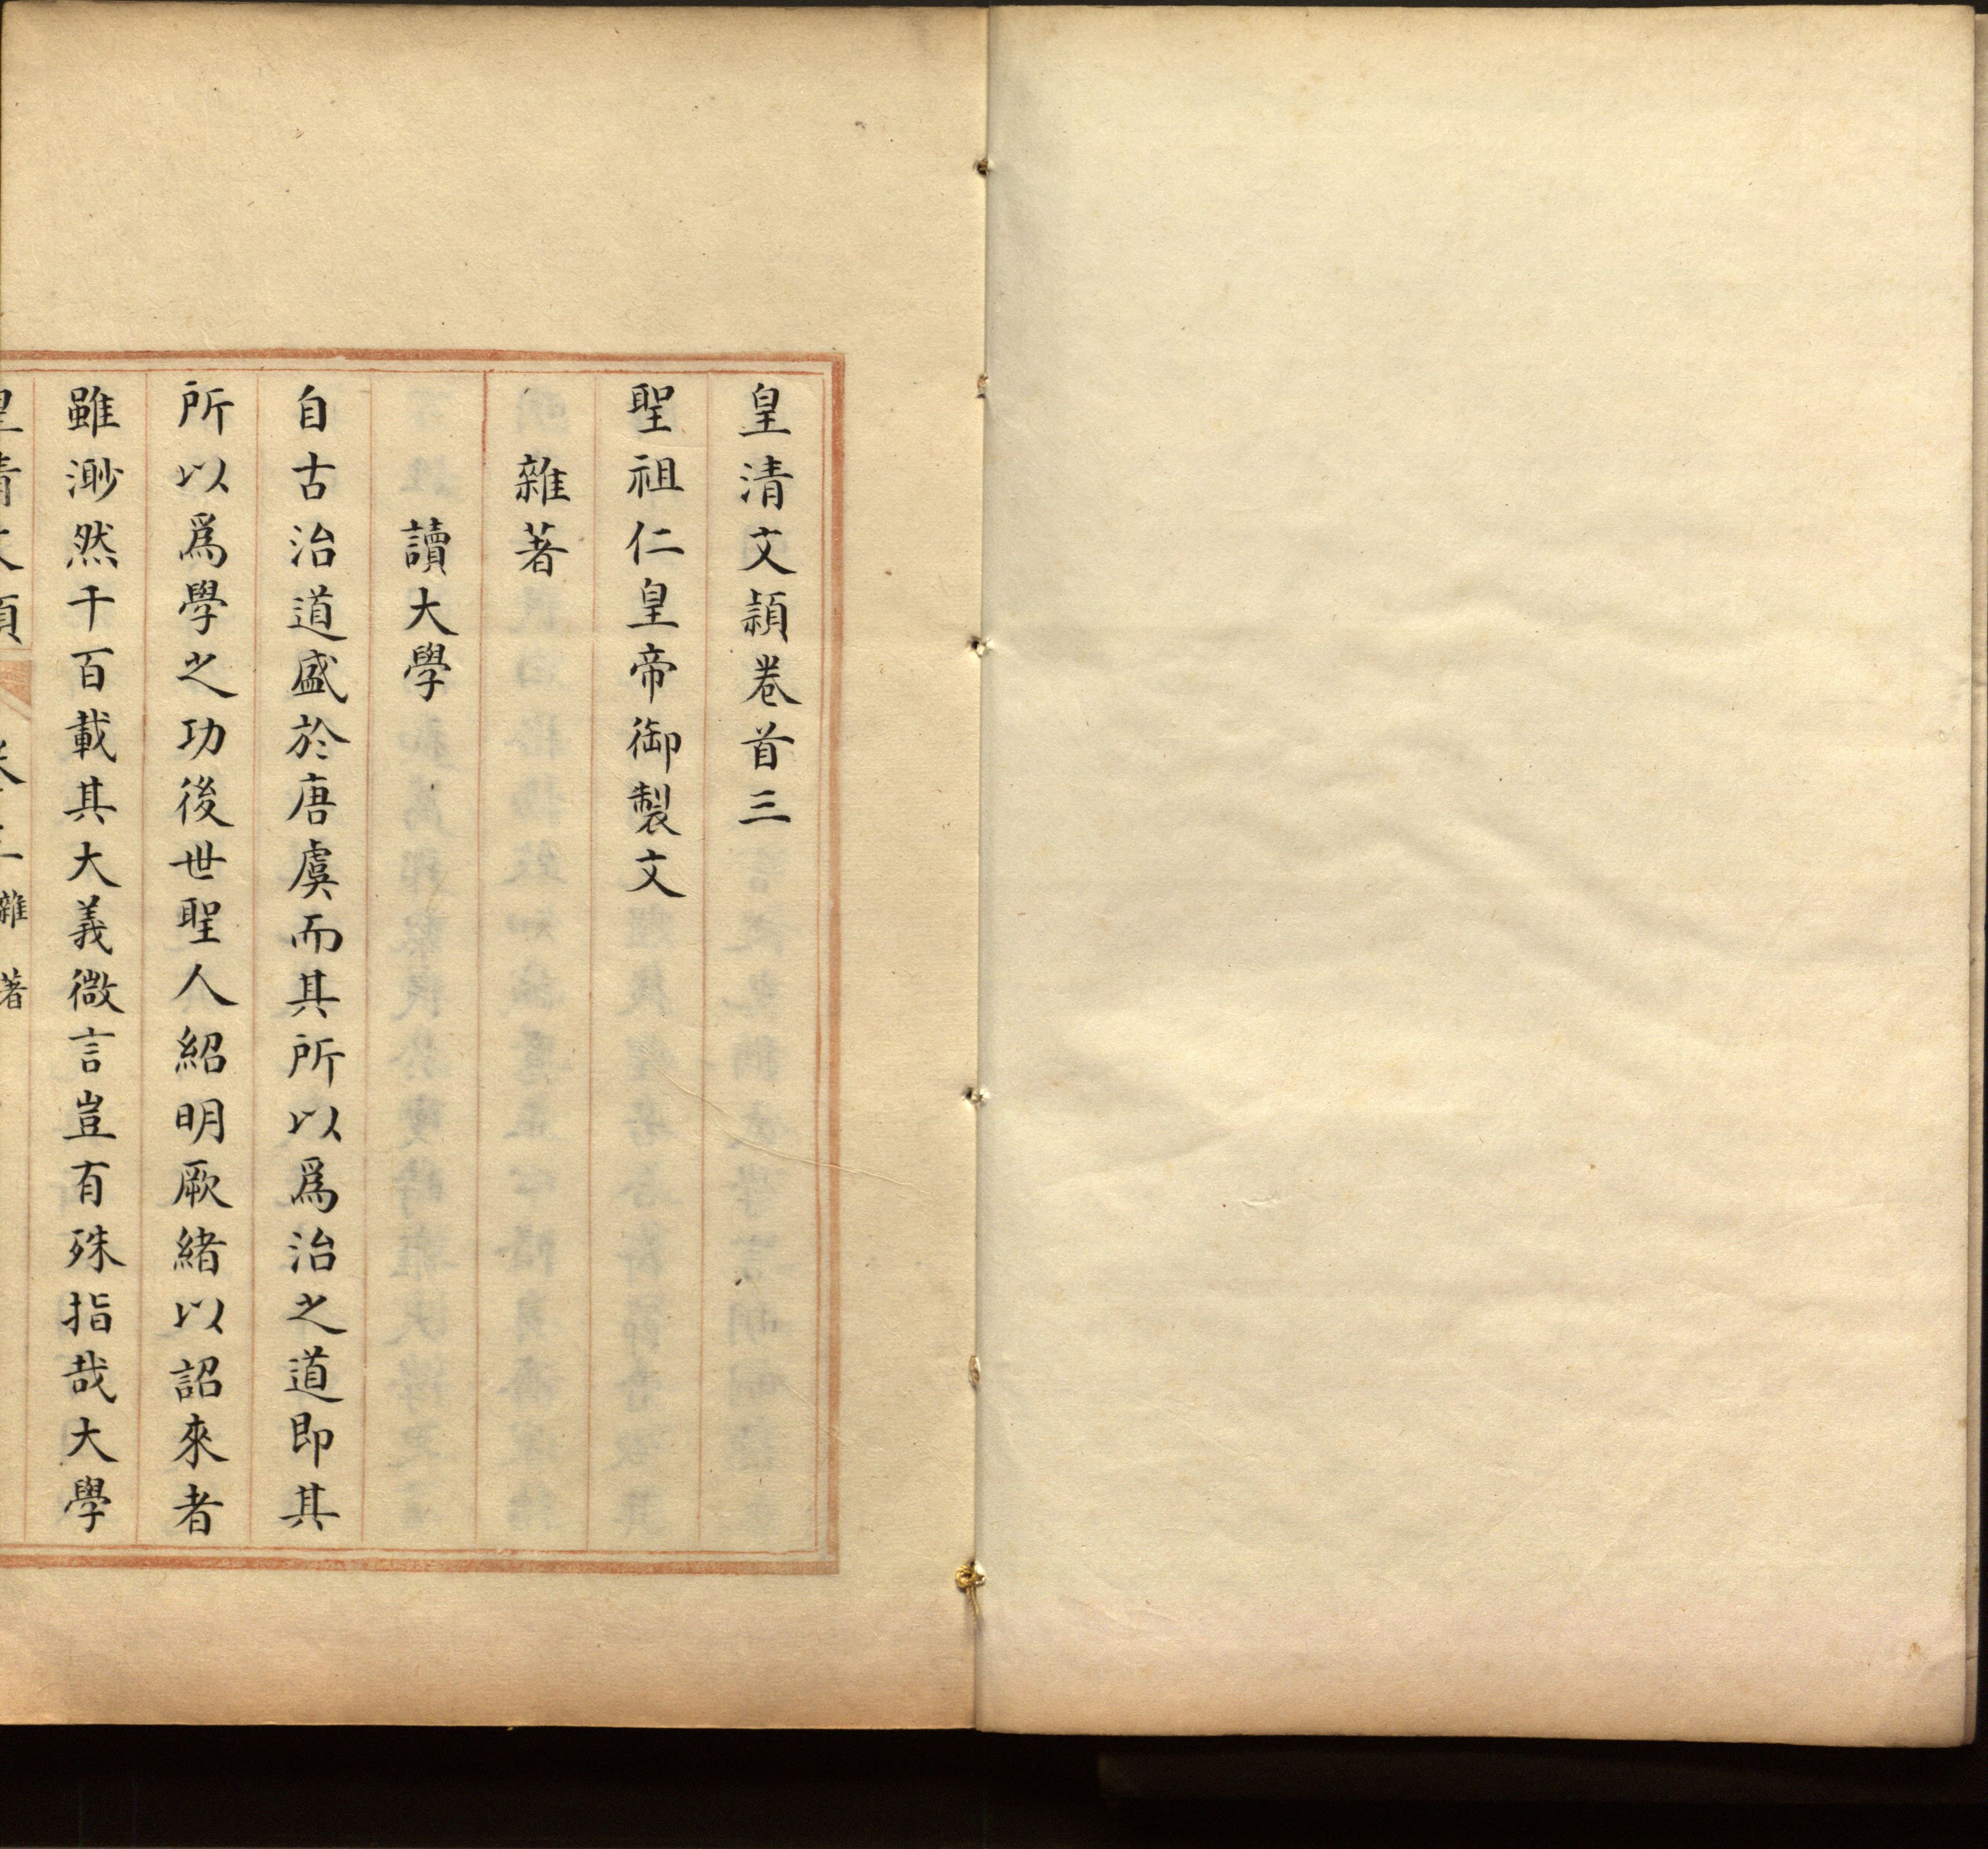 皇清文穎卷首三
聖祖仁皇帝御製文
雜著
讀大學
自古治道盛於唐虞而其所以爲治之道即其
所以爲學之功後世聖人紹明厥緒以詔來者
雖渺然千百載其大義微言豈有殊指哉大學
皇清文穎 卷首三 雜著